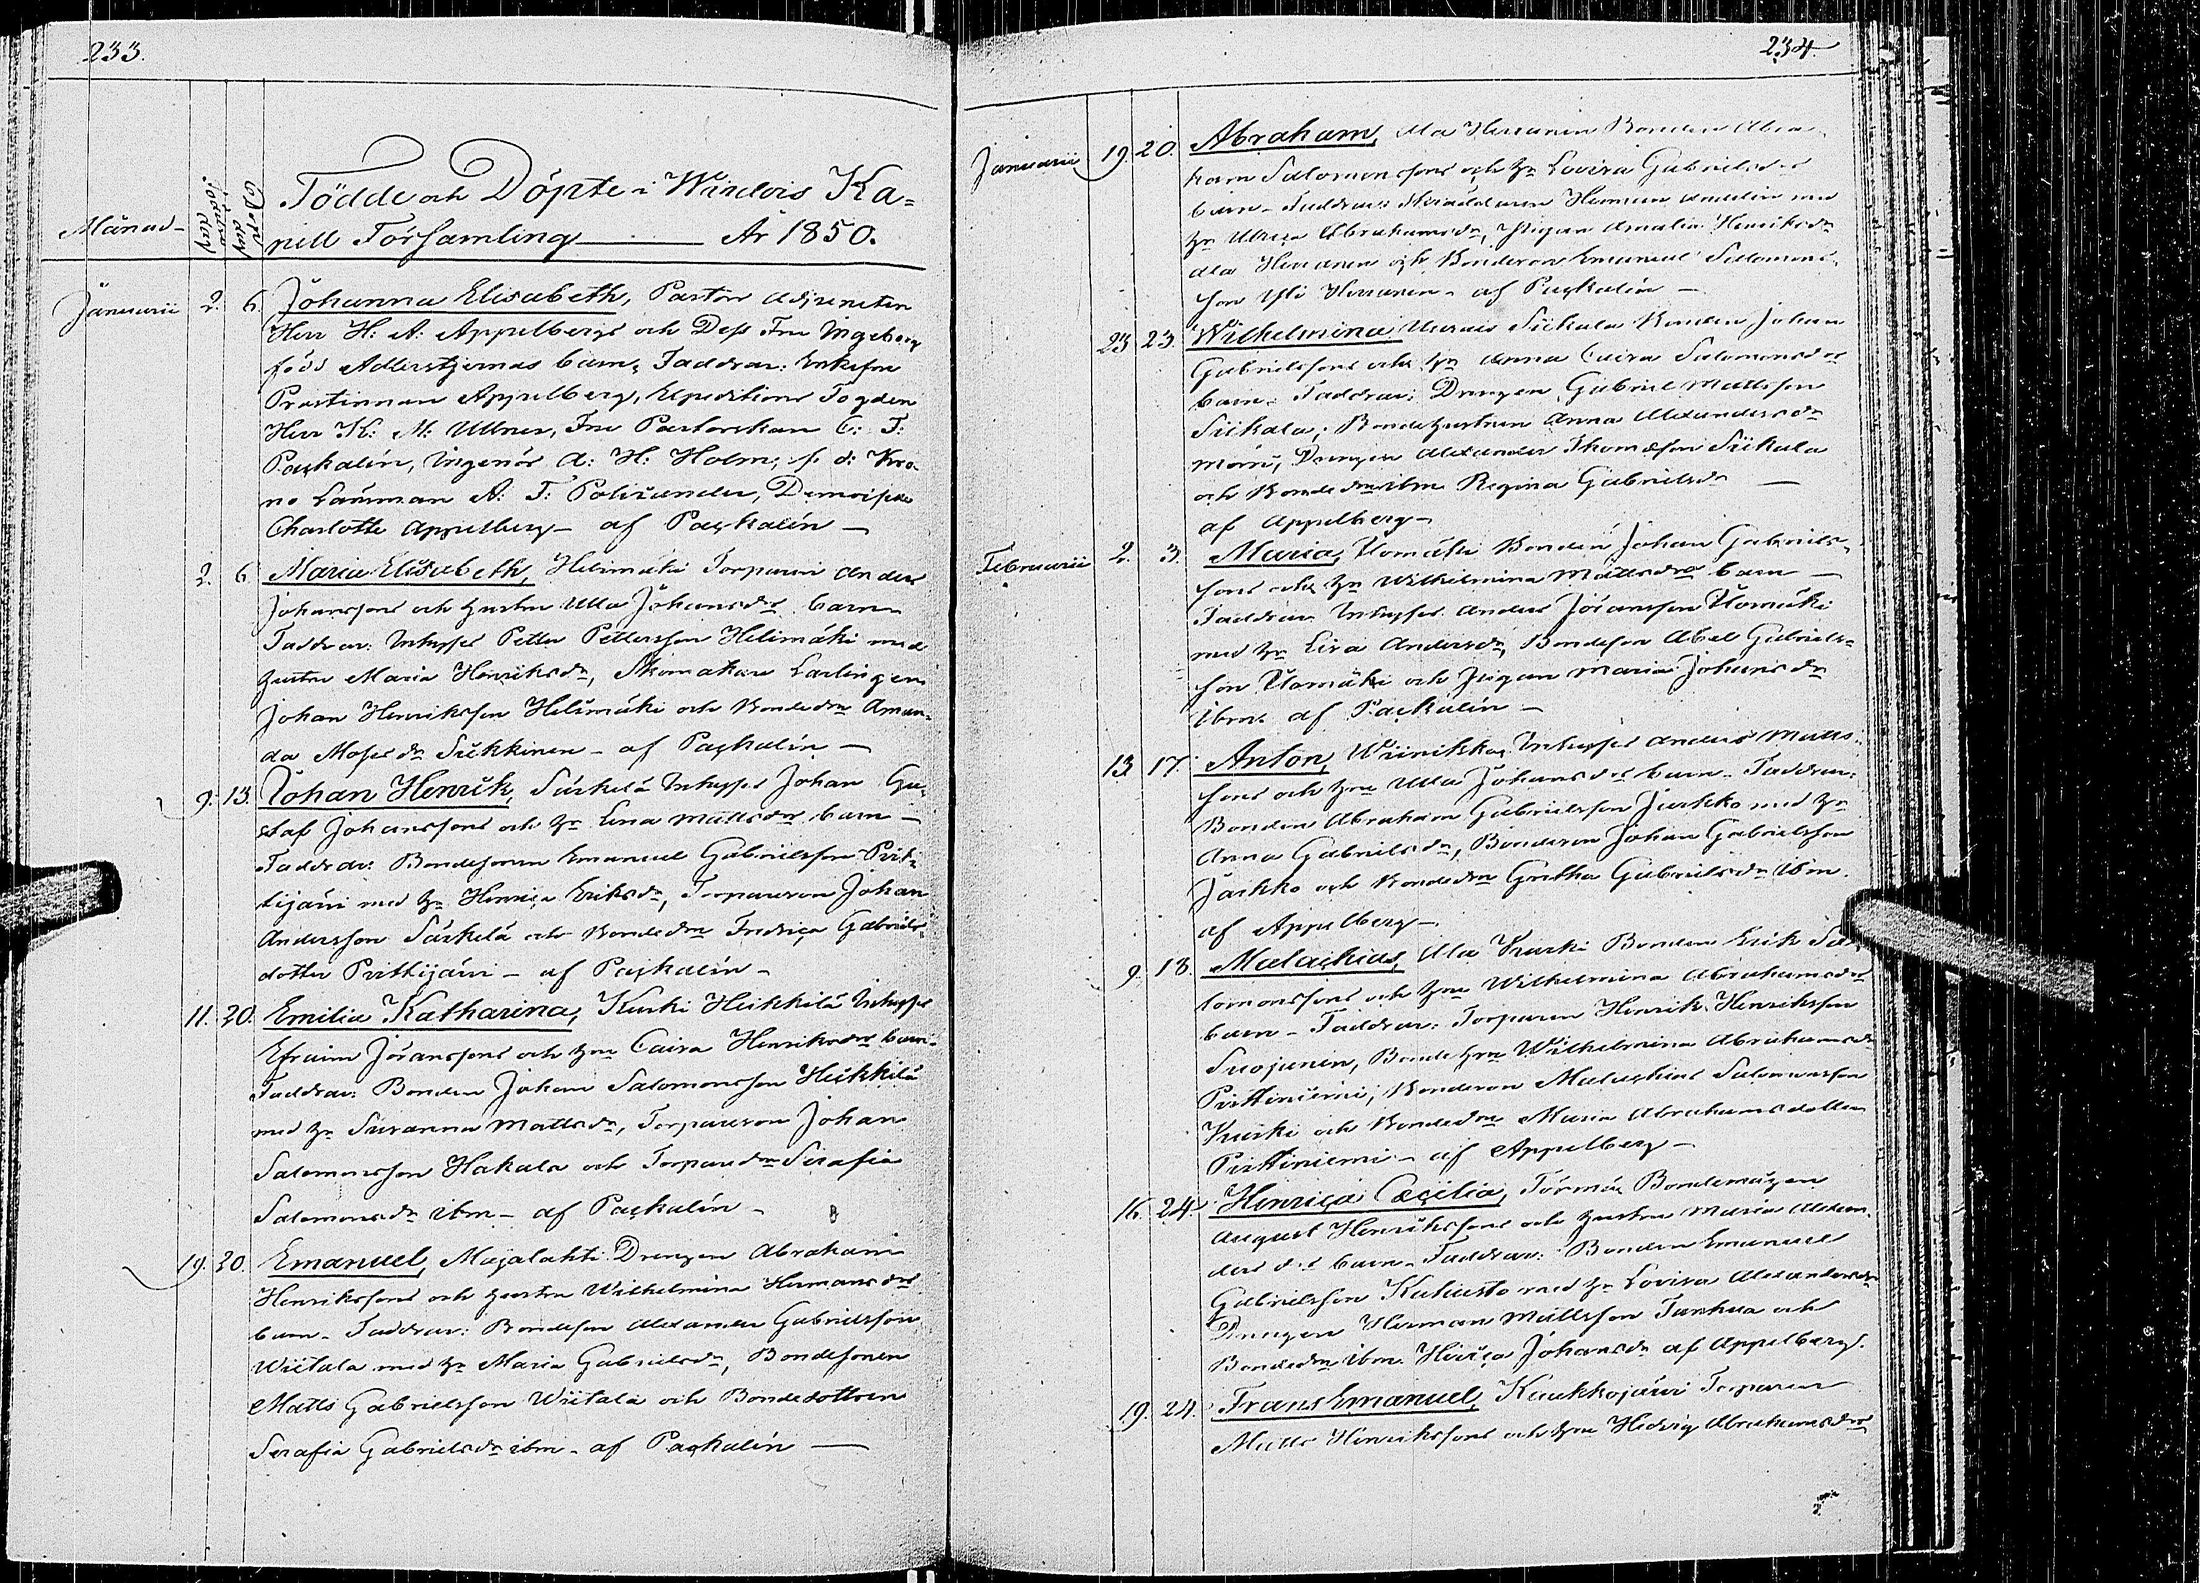 233.
Månad
Födelse dag
Döpelse dag
Födde och Döpte i Windois Ka=
pell Församling År 1850.
Januarii 2. 6. Johanna Elisabeth, Pastors adjuncten
Herr H: A: Appelbergs och Dess Fru Ingeborg
född Adlerstjernas barn, Faddrar: Enkefru
Prostinnan Appelberg, Expeditions Fogden
Herr K: M: Ullner, Fru Pastorskan C: F:
Paçkalén, Ingenör A: H: Holm, s. d: Kro-
no Länsman A: F: Polviander, Demoiselle
Charlotte Appelberg - af Paçkalén -
2. 6. Maria Elisabeth, Helimäki Torparen Anders
Johanssons och hustru Ulla Johansdrs barn
Faddrar: Inhyses Petter Pettersson Helimäki med
hustru Maria Henriksdr, Skomakare Lärlingen
Johan Henriksson Helimäki och Bondedrn Aman-
da Mosesdr Sükkinen - af Paçkalén -
9. 13. Johan Henrik, Särkelä Inhyses Johan Gu-
staf Johanssons och hu Lena Mattsdrs barn -
Faddrar: Bondesonen Emanuel Gabrielsson Pirt-
tijärvi med hu Henriça Eriksdr, Torparesonen Johan
Andersson Särkelä och Bondedrn Fredriça Gabriels-
dotter Pirttijärvi - af Paçkalén -
11. 20. Emilia Katharina, Kurki Heikkilä Inhyses
Efraim Jöranssons och hru Caisa Henriksdrs barn -
Faddrar: Bonden Johan Salomonsson Heikkilä
med hu Susanna Mattsdr, Torpareson Johan
Salomonsson Hakala och Torparedrn Serafia
Salomonsdr ibm - af Paçkalén -
19. 20. Emanuel, Majalahti Drengen Abraham
Henrikssons och hustru Wilhelmina Hermansdrs
barn - Faddrar: Bondeson Alexander Gabrielsson
Wiitala med hu Maria Gabrielsdr, Bondesonen
Matts Gabrielsson Wiitala och Bondedottren
Serafia Gabrielsdr ibm - af Paçkalén -
234.
Januarii 19. 20. Abraham, Ala Herranen Bonden Abra-
ham Salomonssons och hu Lovisa Gabrielsdrs
barn - Faddrar: Skräddaren Herman Amelin med
hu Ulrica Abrahamsdr, Pigan Amalia Henriksdr
Ala Herranen och Bondeson Emanuel Salomons-
son Yli Herranen - af Paçkalén -
23. 23. Wilhelmina, Siikala Bonden Johan
Gabrielssons och hu Anna Caisa Salomonsdrs
barn - Faddrar: Drengen Gabriel Mattsson
Siikala, Bondehustrun Anna Alexandersdr
Drengen Alexander Thomasson Siikala
och Bondedrn ibm Regina Gabrielsdr -
af Appelberg -
Februarii 2. 3. Maria, Uomäki Bonden Johan Gabriels-
sons och hu Wilhelmina Mattsdrs barn -
Faddrar: Inhyses Anders Jöransson Uomäki
med hu Lisa Andersdr, Bondeson Abel Gabriels-
son Uomäki och Pigan Maria Johansdr
ibm - af Paçkalén -
13. 17. Anton, Wiinikka Inhyses Anders Matts-
sons och hru Ulla Johansdrs barn - Faddrar:
Bonden Abraham Gabrielsson Jaskko med hu
Anna Gabrielsdr, Bondeson Johan Gabrielsson
Jaskko och Bondedrn Gretha Gabrielsdr ibm
af Appelberg -
9. 18. Malachias, Ala Kurki Bonden Erik Sa-
lomonssons och hru Wilhelmina Abrahamsdrs
barn - Faddrar: Torparen Henrik Henriksson
Suojanen, Bonde hru Wilhelmina Abrahamsdr
Pirttiniemi, Bondeson Malachias Salomonsson
Kurki och Bondedrn Maria Abrahamsdotter
Pirttiniemi - af Appelberg -
16. 24. Henriça Cæçilia, Törmä Bondemågen
August Henrikssons och hustru Maria Alexan-
dersdrs barn - Faddrar: Bonden Emanuel
Gabrielsson Kuhusto med hu Lovisa Alexandersdr
Drengen Herman Mattsson Tanhua och
Bondedrn ibm Johansdr af Appelberg.
19. 24. Frans Emanuel, Kaukkojärvi Torparen
Matts Henrikssons och hru Hedvig Abrahamsdrs